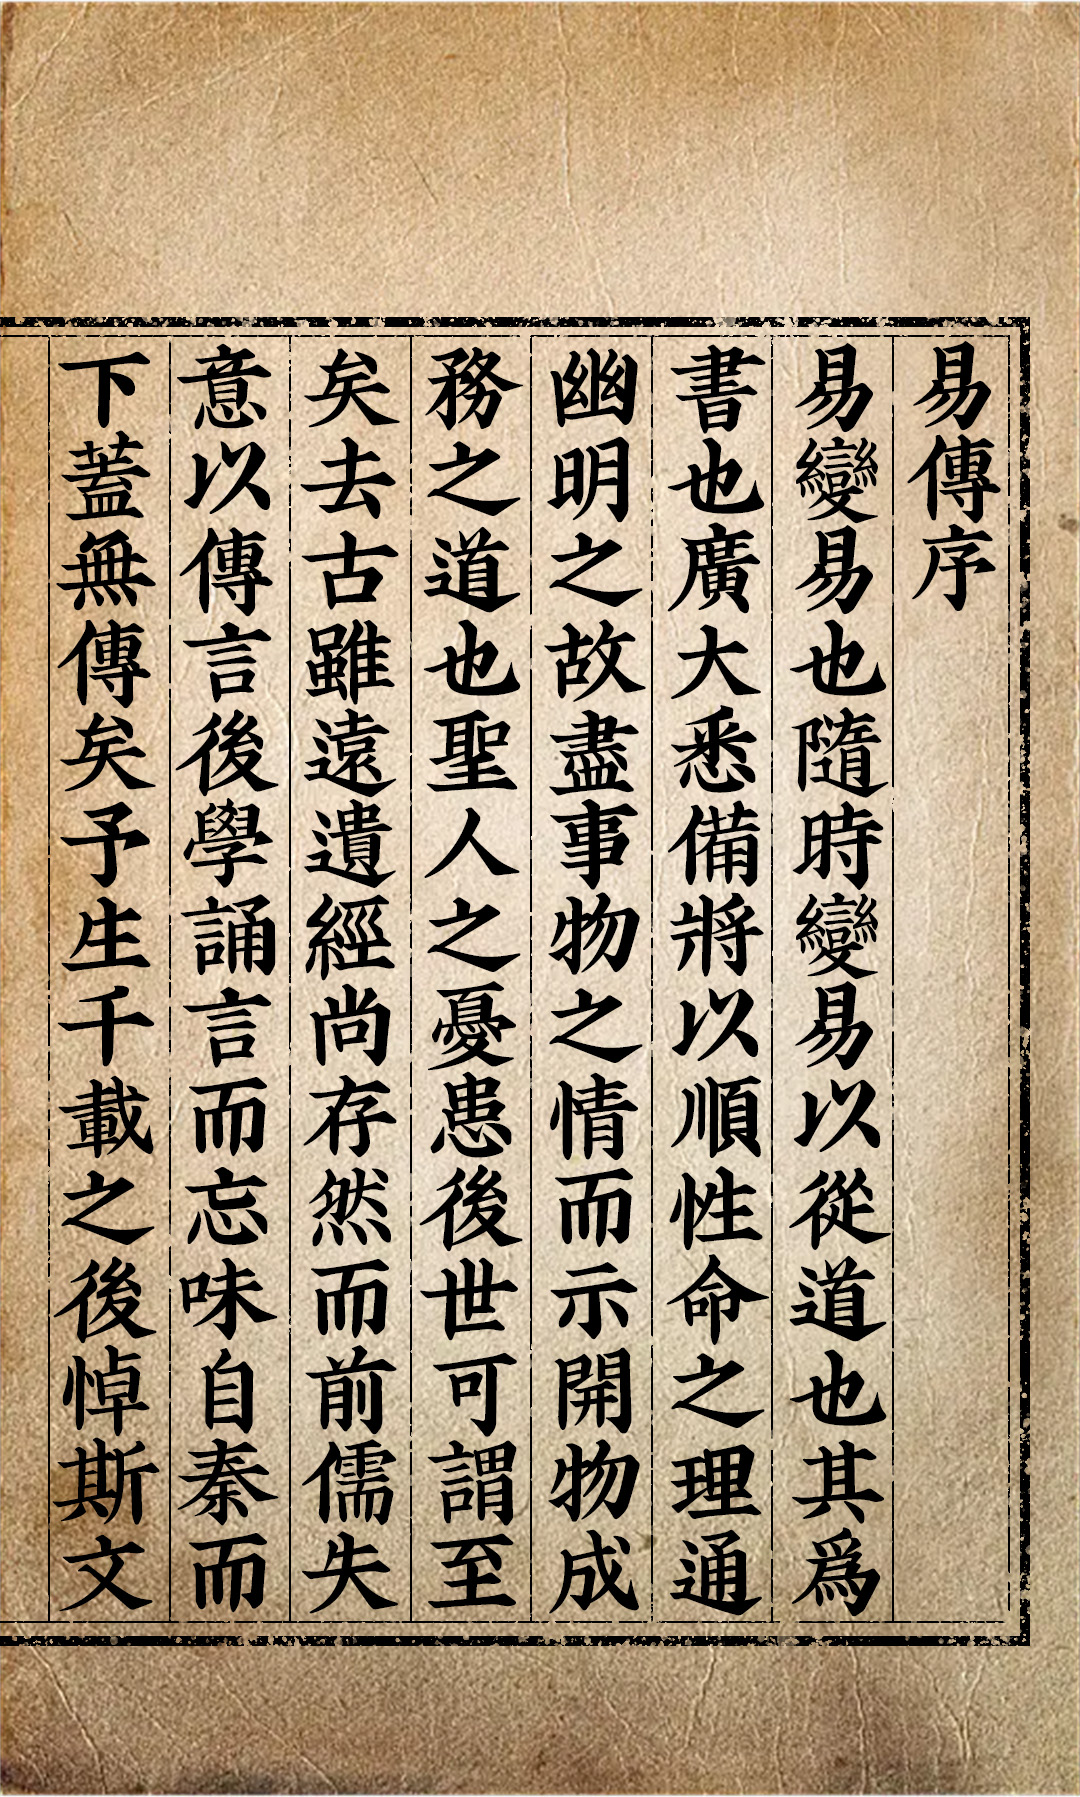 易傳序
易變易也隨時變易以從道也其爲
書也廣大悉備將以順性命之理通
幽明之故盡事物之情而示開物成
務之道也聖人之憂患後世可謂至
矣去古雖遠遺經尚存然而前儒失
意以傳言後學誦言而忘味自秦而
下蓋無傳矣予生千載之後悼斯文